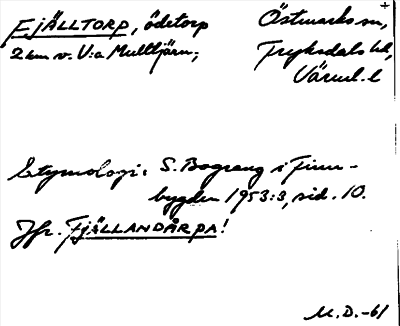 FJÄLLTORP, ödetorp
2 km v. V:a Mulltjärn;
Östmarks sn,
Fryksdals hd,
Värml. l
Etymologi: S. Bograng i Finn-
bygden 1953:3, sid. 10.
Jfr. FJÄLLANDÅRPA!
M.D.-61